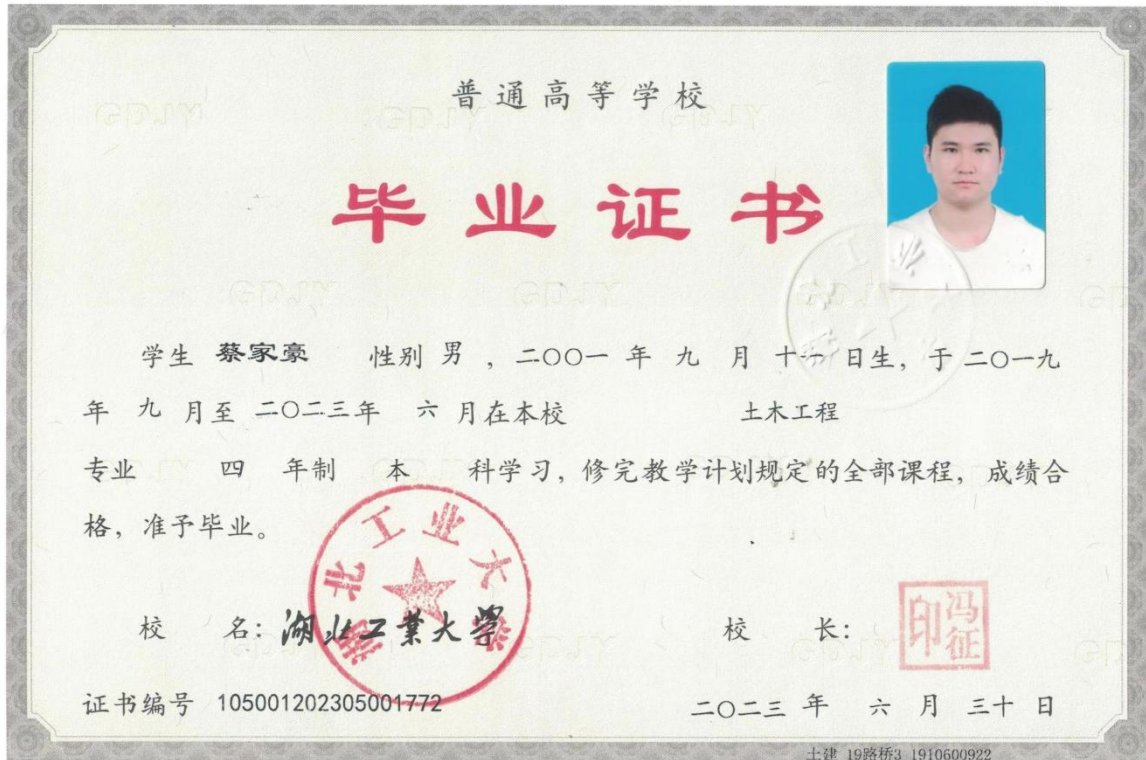 普通高等学校
毕业证书
学生 蔡家豪 性别 男 ，二〇〇一 年 九 月 十 日生，于 二〇一九
年 九 月至 二〇二三年 六 月在本校 土木工程
专业 四 年制 本 科学习，修完教学计划规定的全部课程，成绩合
格，准予毕业。
湖北工业大学
校 名：湖北工業大學 校 长： 冯征印
证书编号 105001202305001772 二〇二三 年 六 月 三十 日
土建 19路桥3 1910600922